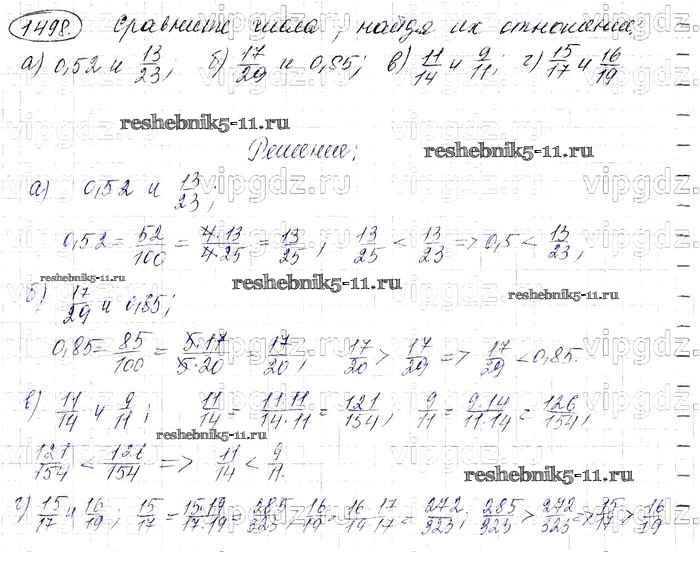 1498. Сравните числа, найдя их отношения:
а) 0,52 и 13/23; б) 17/29 и 0,85; в) 11/14 и 9/11; г) 15/17 и 16/19
reshebnik5-11.ru
reshebnik5-11.ru
Решение;
а) 0,52 и 13/23;
0,52 = 52/100 = 4·13/4·25 = 13/25, 13/25 < 13/23 => 0,5 < 13/23;
reshebnik5-11.ru
reshebnik5-11.ru
reshebnik5-11.ru
б) 17/29 и 0,85;
0,85 = 85/100 = 5·17/5·20 = 17/20, 17/20 > 17/29 => 17/29 < 0,85.
в) 11/14 и 9/11; 11/14 = 11·11/14·11 = 121/154, 9/11 = 9·14/11·14 = 126/154,
reshebnik5-11.ru
121/154 < 126/154 => 11/14 < 9/11.
reshebnik5-11.ru
г) 15/17 и 16/19; 15/17 = 15·19/17·19 = 285/323, 16/19 = 16·17/19·17 = 272/323; 285/323 > 272/323 => 15/17 > 16/19
vipgdz.ru